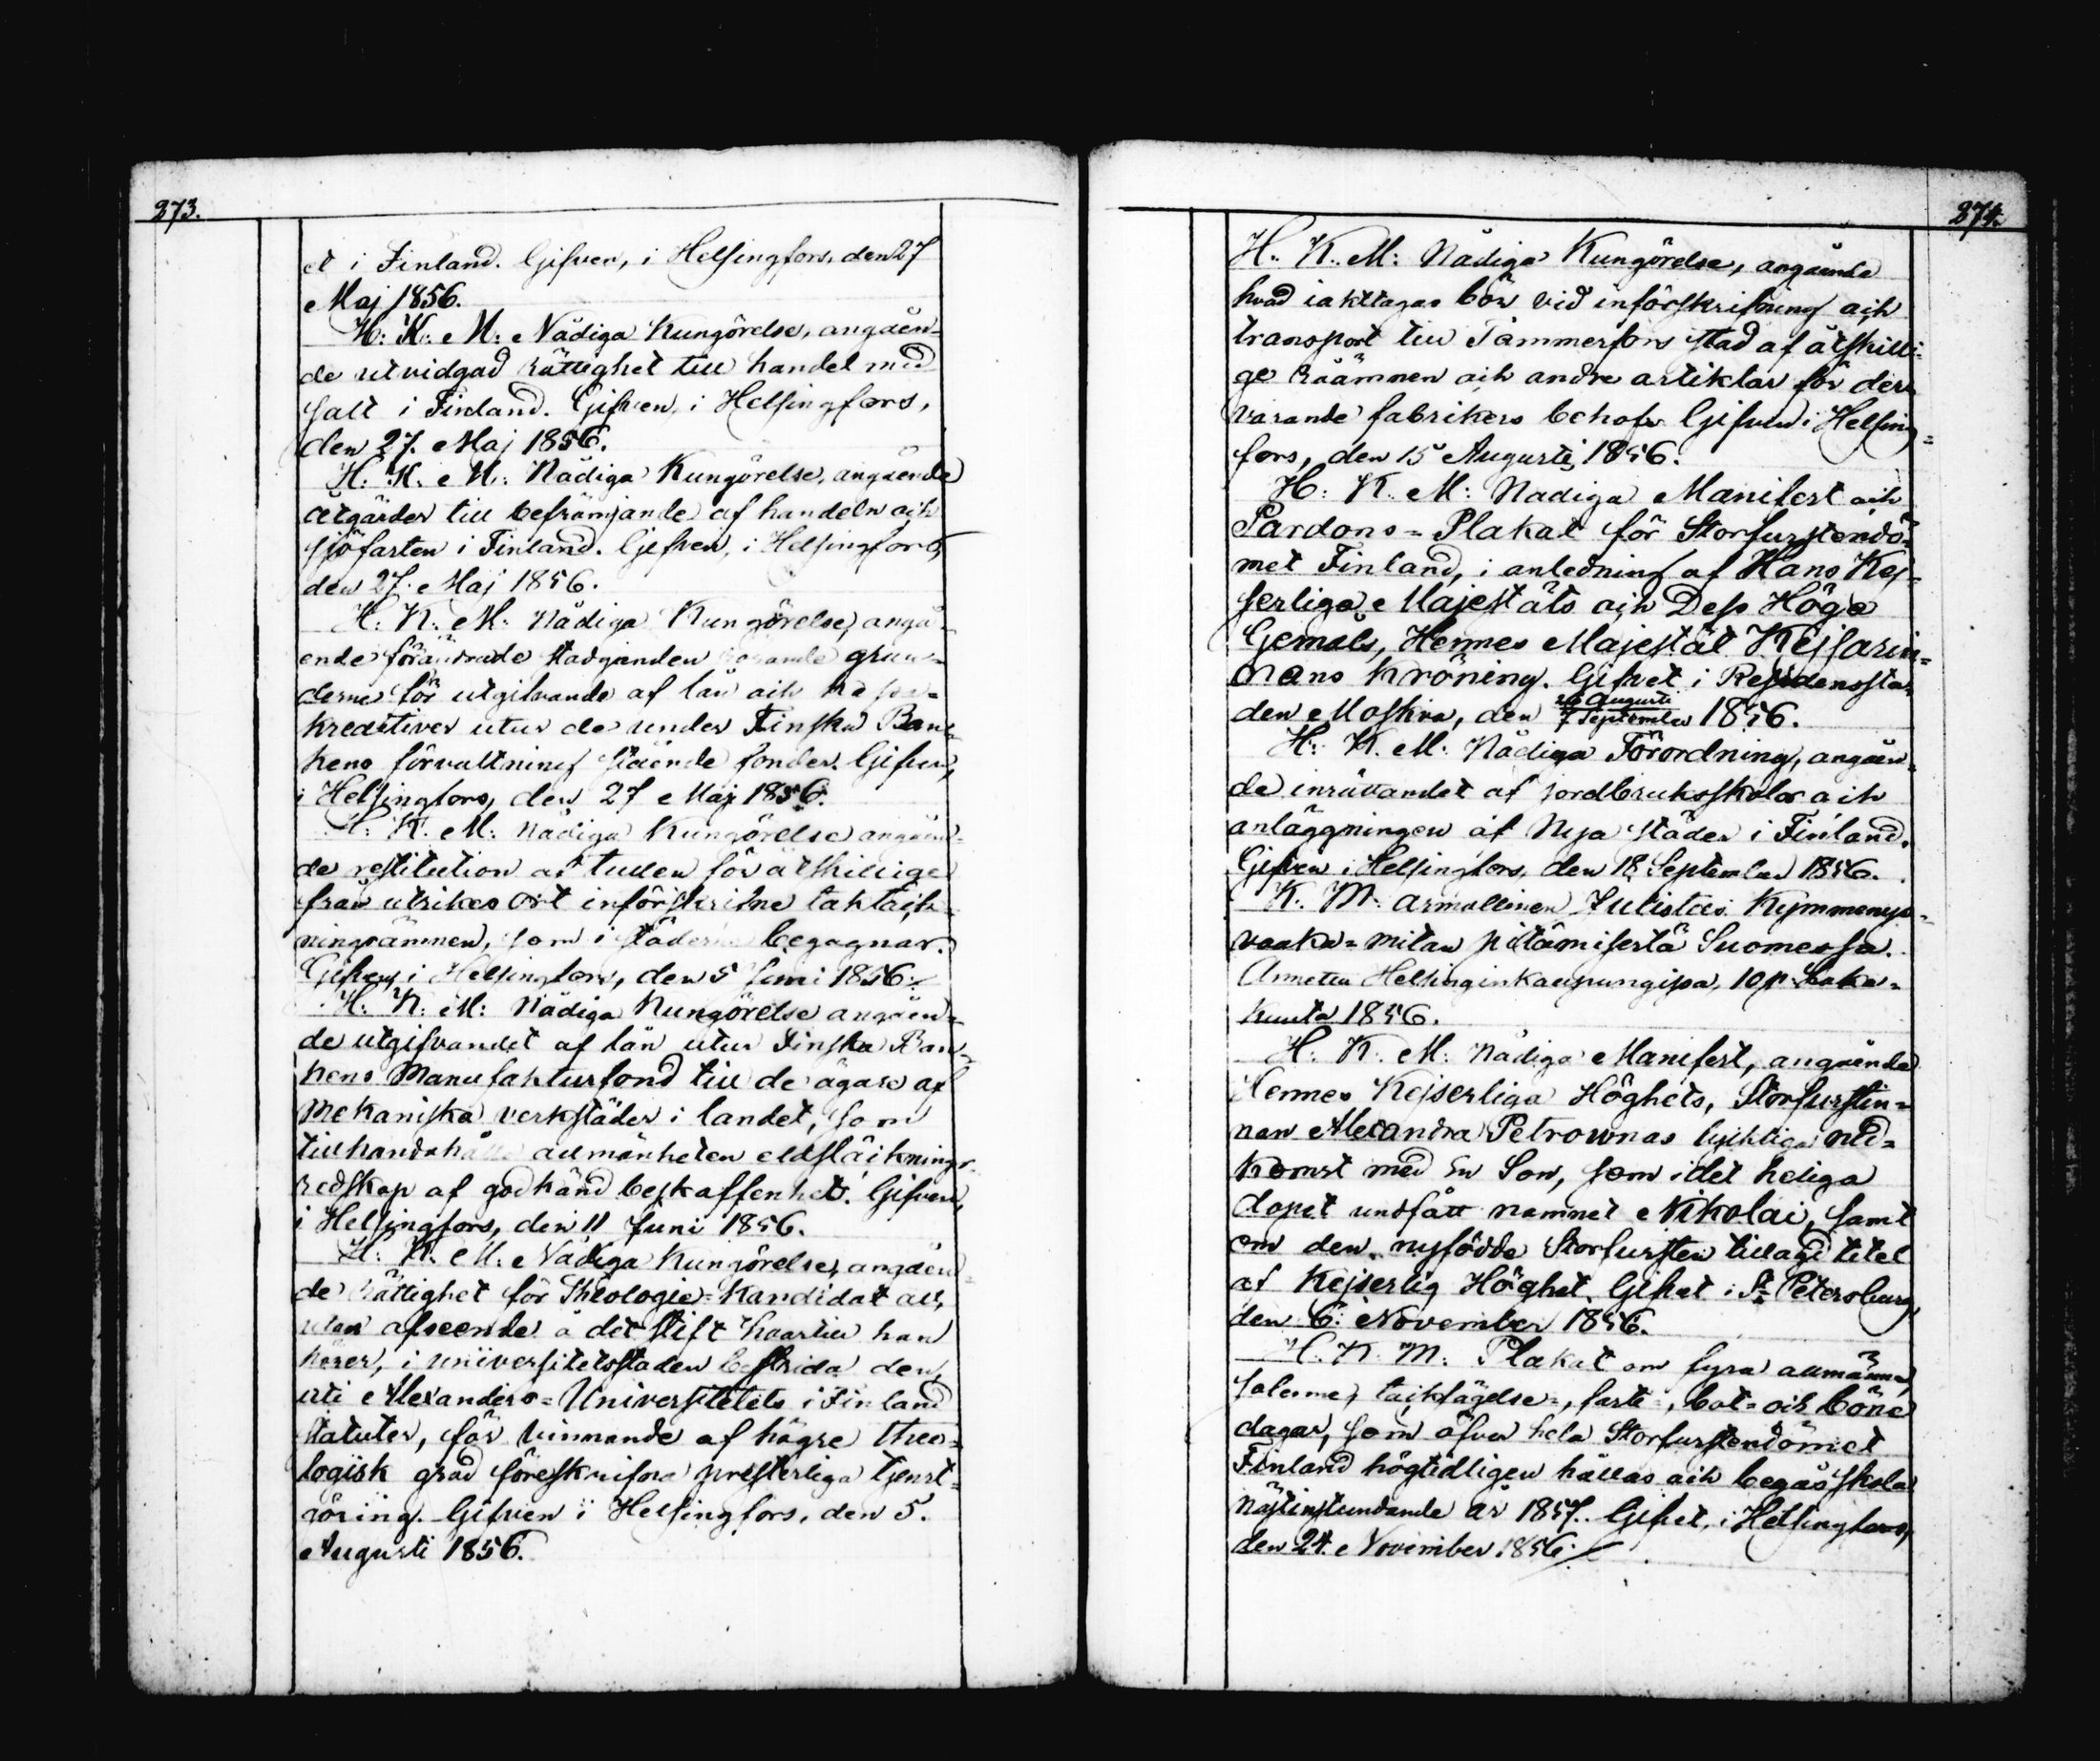 273.
et i Finland. Gifven, i Helsingfors, den 27
Maj 1856.
H: K: M: Nådiga Kungörelse, angåen-
de utvidgad rättighet till handel med
salt i Finland. Gifven, i Helsingfors,
den 27. Maj 1856.
H: K: M: Nådiga Kungörelse, angående
åtgärder till befrämjande af handeln och
sjöfarten i Finland. Gifven, i Helsingfors,
den 27. Maj 1856.
H: K: M: Nådiga Kungörelse, angå-
ende förändrade stadganden rörande grun-
derne för utgifvande af lån och
kreditiver utur de under Finska Ban-
kens förvaltning stående fonder. Gifven,
i Helsingfors, den 27 Maj 1856.
H: K: M: Nådiga Kungörelse angåen-
de restitution af tullen för åtskillige
från utrikes ort införskrifne taktäck-
ningsämnen, som i städerne begagnas.
Gifven, i Helsingfors, den 5 Juni 1856.
H: K: M: Nådiga Kungörelse angåen-
de utgifvandet af lån utur Finska Ban-
kens Manufakturfond till de ägare af
Mekaniska verkstäder i landet, som
tillhandahålla allmänheten eldsläcknings-
redskap af godkänd beskaffenhet. Gifven,
i Helsingfors, den 11 Juni 1856.
H: K: M: Nådiga Kungörelse, angåen-
de rättighet för Theologie-Kandidat att,
utan afseende å det stift hvartill han
hörer, i universitetsstaden bestrida den,
uti Alexanders-Universitetets i Finland
statuter, för vinnande af högre theo-
logisk grad föreskrifna presterliga tjenst-
göring. Gifven i Helsingfors, den 5.
Augusti 1856.
274.
H: K: M: Nådiga Kungörelse, angående
hvad iakttagas bör vid införskrifning och
transport till Tammerfors stad af åtskilli-
ge råämnen och andre artiklar för der-
varande fabrikers behof. Gifven i Helsing-
fors, den 15 Augusti 1856.
H: K: M: Nadiga Manifest och
Pardons-Plakat för Storfurstendö-
met Finland, i anledning af Hans Kej-
serliga Majestäts och Dess Höga
Gemåls, Hennes Majestät Kejsarin-
nans Kröning. Gifvet i Residenssta-
den Moskva, den 26 Augusti / 7 September 1856.
H: K: M: Nådiga Förordning, angåen-
de inrättandet af jordbruksskolor och
anläggningen af Nya städer i Finland.
Gifven i Helsingfors, den 18 September 1856.
K: M: armollinen Julistus Kymmenys-
vaaka-mitan pitämisestä Suomessa.
Annettu Helsingin kaupungissa, 10 p. Loka-
kuuta 1856.
H: K: M: Nådiga Manifest, angående
Hennes Kejserliga Höghets, Storfurstin-
nan Alexandra Petrownas lyckliga ned-
komst med en Son, som i det heliga
dopet undfått namnet Nikolai, samt
om den nyfödde Storfursten tillagd titel
af Kejserlig Höghet. Gifvet i St Petersburg,
den 6: November 1856.
H: K: M: Plakat om fyra allmänna,
solenne, tacksägelse-, faste-, bot- och böne
dagar, som öfver hela Storfurstendömet
Finland högtidligen hållas och begås skola
nästinstundande år 1857. Gifvet, i Helsingfors,
den 24. November 1856.